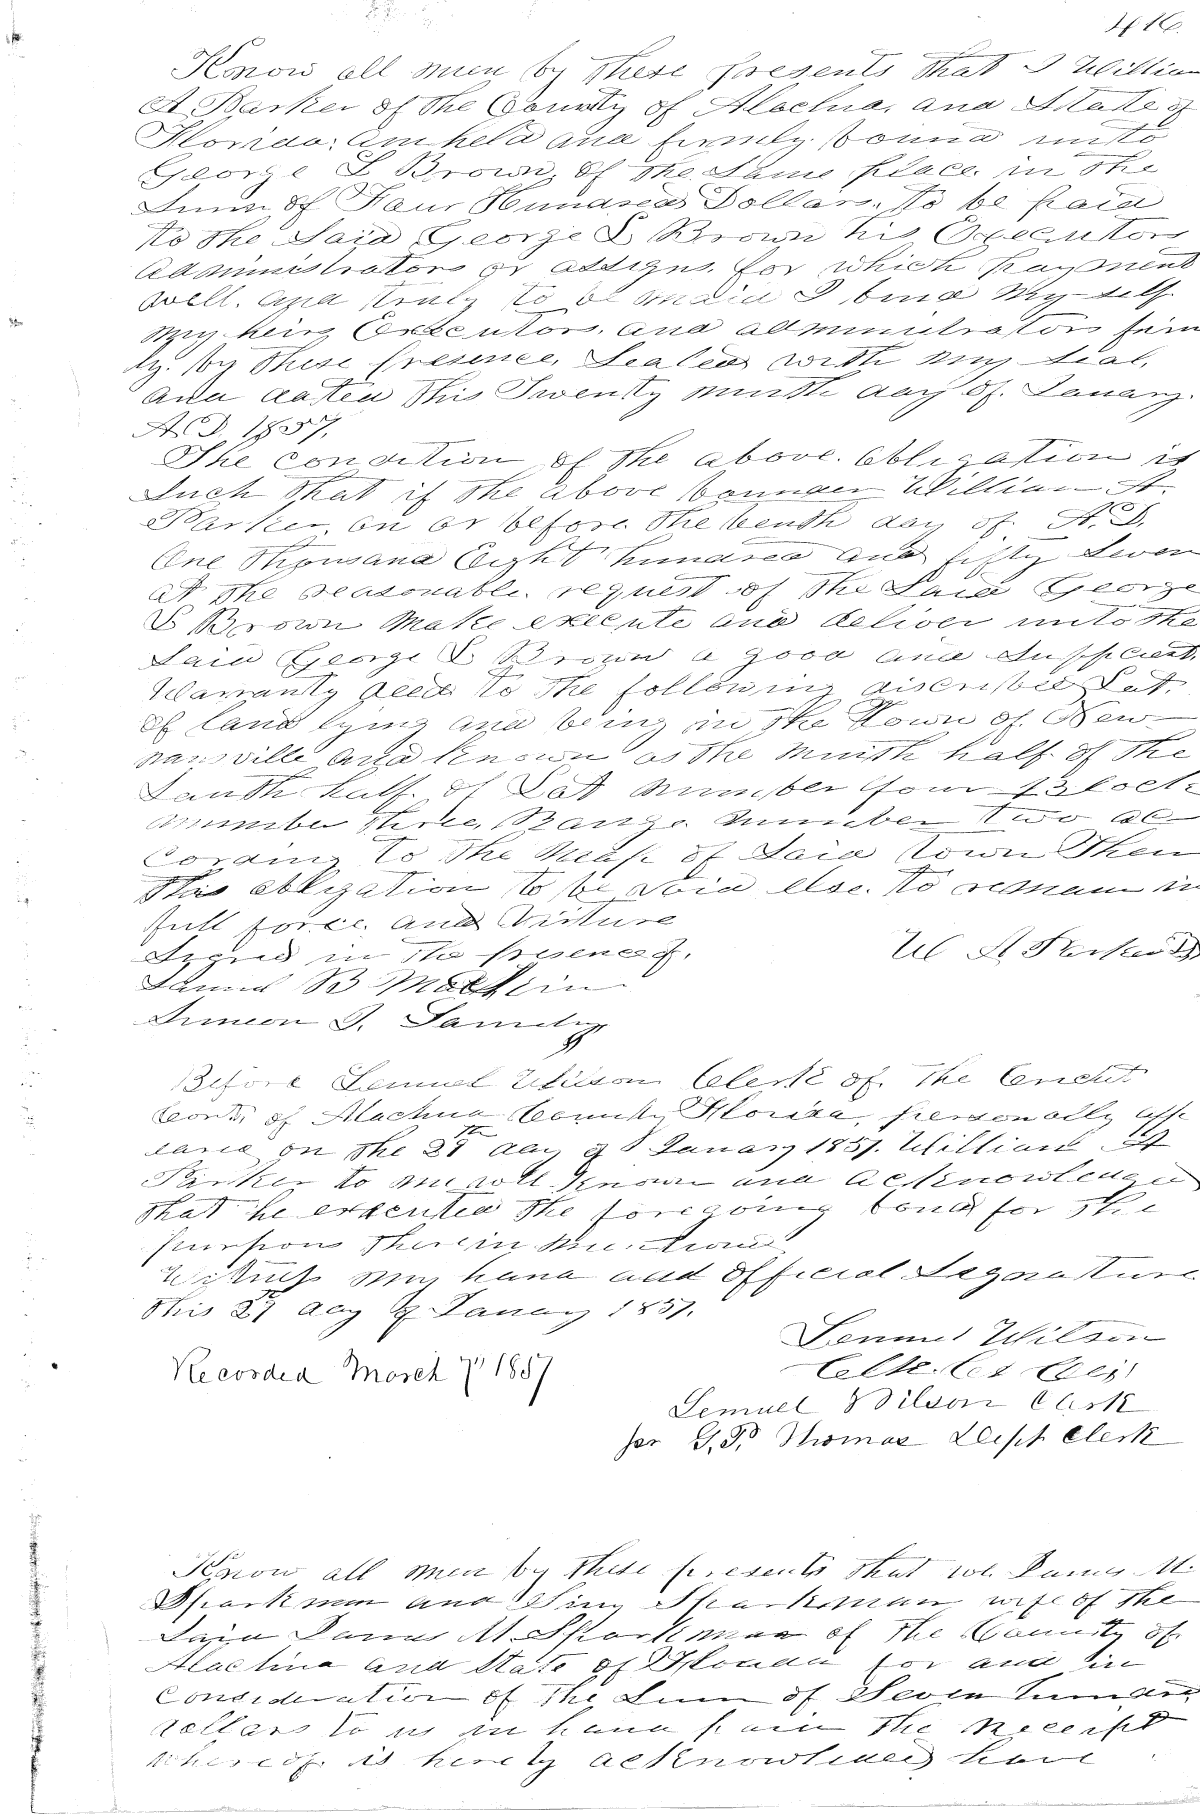 416.
Know all men by these presents that I William
A Barker of the County of Alachua, and State of
Florida, am held and firmly bound unto
George L Brown, of the same place in the
Sum of Four Hundred Dollars, to be paid
to the Said George L Brown his Executors
administrators or assigns for which payment
well. and truly to be maid I bind my self
my heirs Executors, and administrators firm
ly. by these presence, Sealed with my seal,
and dated this Twenty ninth day of. January.
A.D. 1857.
The condition of the above. obligation is
Such that if the above bounden William A.
Parker, on or before. the tenth day of. A.D.
One thousand Eight hundred and fifty Seven
at the reasonable. request of the Said George
L Brown make execute and deliver unto the
Said George L Brown a good and Sufficient
Warranty deed to the following discribed Lot.
of land lying and being in the town of New-
nansville and known as the North half of the
South half. of Lot number four Block
number three, Range number two ac
cording to the Map of Said town Then
this obligation to be void else. to remain in
full force. and Virture
Signed in the presence of.
W A Parker
Samuel B
Simeon J.
Before Lemuel Wilson Clerk of. the Circuit
Cort, of Alachua County Florida, personally app
eared on the 29th day of January 1857. William A
Parker to me well known and acknowledged
that he executed the foregoing bond for the
purpous therein mentioned
Witness my hand and official Signature
this 29 day of January 1857.
Lemuel Wilson
Recorded March 7th 1857
Lemuel Wilson Clerk
per G.P. Thomas Dept Clerk
Know all men by these presents that we James M.
Sparkman and Siny Sparkman wife of the
Said James M. Sparkman of the County of
Alachua and State of Florida for and in
Consideration of the Sum of Seven hundred
dollars to us in hand paid the Receipt
whereof. is hereby acknowledged have